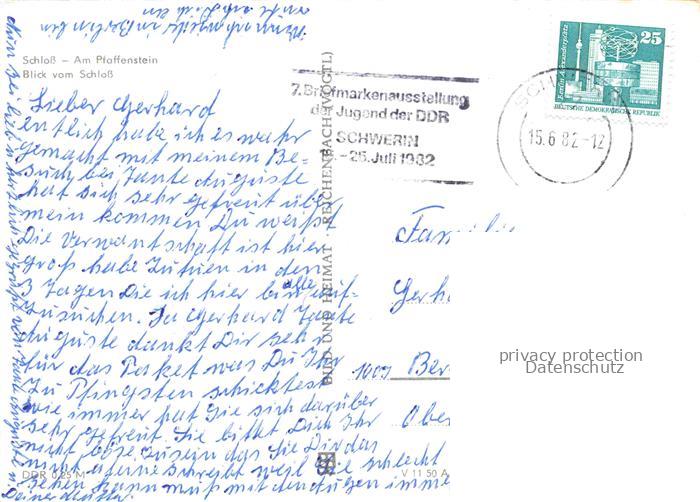 Schloß – Am Pfaffenstein
Blick vom Schloß
Lieber Gerhard
entlich habe ich es wahr
gemacht mit meinem Be-
such bei Tante Auguste
hat sich sehr gefreut über
mein kommen. Du weißt
Die Verwantschaft ist hier
groß habe zutuen in den
3 Tagen Die ich hier bin alle auf-
zusuchen. Ja Gerhard Tante
Auguste dankt Dir sehr
für das Paket was Du Ihr
zu Pfingsten schicktest
wie immer hat Sie sich darüber
sehr gefreut. Sie bittet Dich Ihr
nicht böse zu sein das Sie Dir das
nicht schreibt weil Sie schlecht
sehen kann muß mit den Augen imme
BILD UND HEIMAT REICHENBACH (VOGTL)
7. Briefmarkenausstellung
der Jugend der DDR
SCHWERIN
- 25. Juli 1982
SCHWE
15.6.82-12
25
Berlin, Alexanderplatz
DEUTSCHE DEMOKRATISCHE REPUBLIK
Fam
Gerh
1009 Ber
Ober
privacy protection
Datenschutz
DDR 0,25 M
V 11 50 A